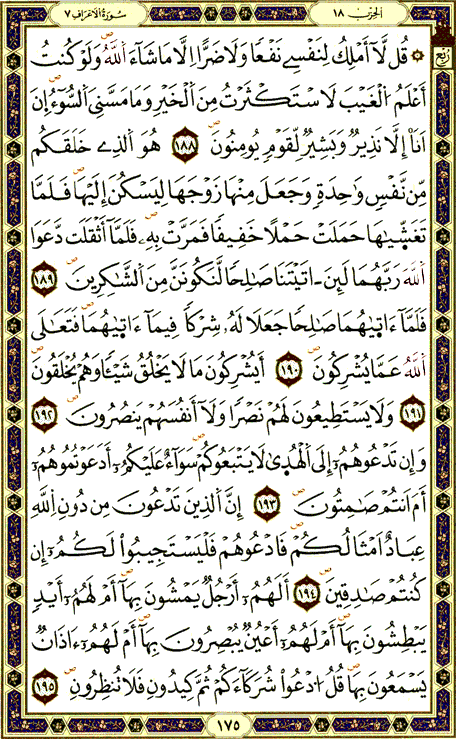 الحزب ١٨
سُورَةُ الأَعْرَافِ ٧
رُبع
۞ قُل لَّآ أَمْلِكُ لِنَفْسِے نَفْعًا وَلَا ضَرًّا اِلَّا مَا شَآءَ اَللَّهُ وَلَوْ كُنتُ
أَعْلَمُ اُلْغَيْبَ لَاسْتَكْثَرْتُ مِنَ اَلْخَيْرِ وَمَا مَسَّنِيَ اَلسُّوٓءُ اِنَ
اَنَا۠ إِلَّا نَذِيرٌ وَبَشِيرٌ لِّقَوْمٍ يُومِنُونَ ١٨٨ هُوَ اَلذِے خَلَقَكُم
مِّن نَّفْسٍ وَٰحِدَةٍ وَجَعَلَ مِنْهَا زَوْجَهَا لِيَسْكُنَ إِلَيْهَا فَلَمَّا
تَغَشَّىٰهَا حَمَلَتْ حَمْلًا خَفِيفًا فَمَرَّتْ بِهِۦ فَلَمَّآ أَثْقَلَت دَّعَوَا
اَللَّهَ رَبَّهُمَا لَئِنَ اٰتَيْتَنَا صَٰلِحًا لَّنَكُونَنَّ مِنَ اَلشَّٰكِرِينَ ١٨٩
فَلَمَّآ ءَاتَىٰهُمَا صَٰلِحًا جَعَلَا لَهُۥ شِرْكًا فِيمَآ ءَاتَىٰهُمَا فَتَعَٰلَى
اَللَّهُ عَمَّا يُشْرِكُونَ ١٩٠ أَيُشْرِكُونَ مَا لَا يَخْلُقُ شَيْـًٔا وَهُمْ يُخْلَقُونَ
١٩١ وَلَا يَسْتَطِيعُونَ لَهُمْ نَصْرًا وَلَآ أَنفُسَهُمْ يَنصُرُونَ ١٩٢
وَإِن تَدْعُوهُمُۥٓ إِلَى اَلْهُدَىٰ لَا يَتْبَعُوكُمْ سَوَآءٌ عَلَيْكُمُۥٓ أَدَعَوْتُمُوهُمُۥٓ
أَمَ اَنتُمْ صَٰمِتُونَ ١٩٣ إِنَّ اَلذِينَ تَدْعُونَ مِن دُونِ اِللَّهِ
عِبَادٌ اَمْثَالُكُمْ فَادْعُوهُمْ فَلْيَسْتَجِيبُوا۟ لَكُمُۥٓ إِن
كُنتُمْ صَٰدِقِينَ ١٩٤ أَلَهُمُۥٓ أَرْجُلٌ يَمْشُونَ بِهَآ أَمْ لَهُمُۥٓ أَيْدٍ
يَبْطِشُونَ بِهَآ أَمْ لَهُمُۥٓ أَعْيُنٌ يُبْصِرُونَ بِهَآ أَمْ لَهُمُۥٓ ءَاذَانٌ
يَسْمَعُونَ بِهَا قُلُ اُدْعُوا۟ شُرَكَآءَكُمْ ثُمَّ كِيدُونِ فَلَا تُنظِرُونِ ١٩٥
١٧٥